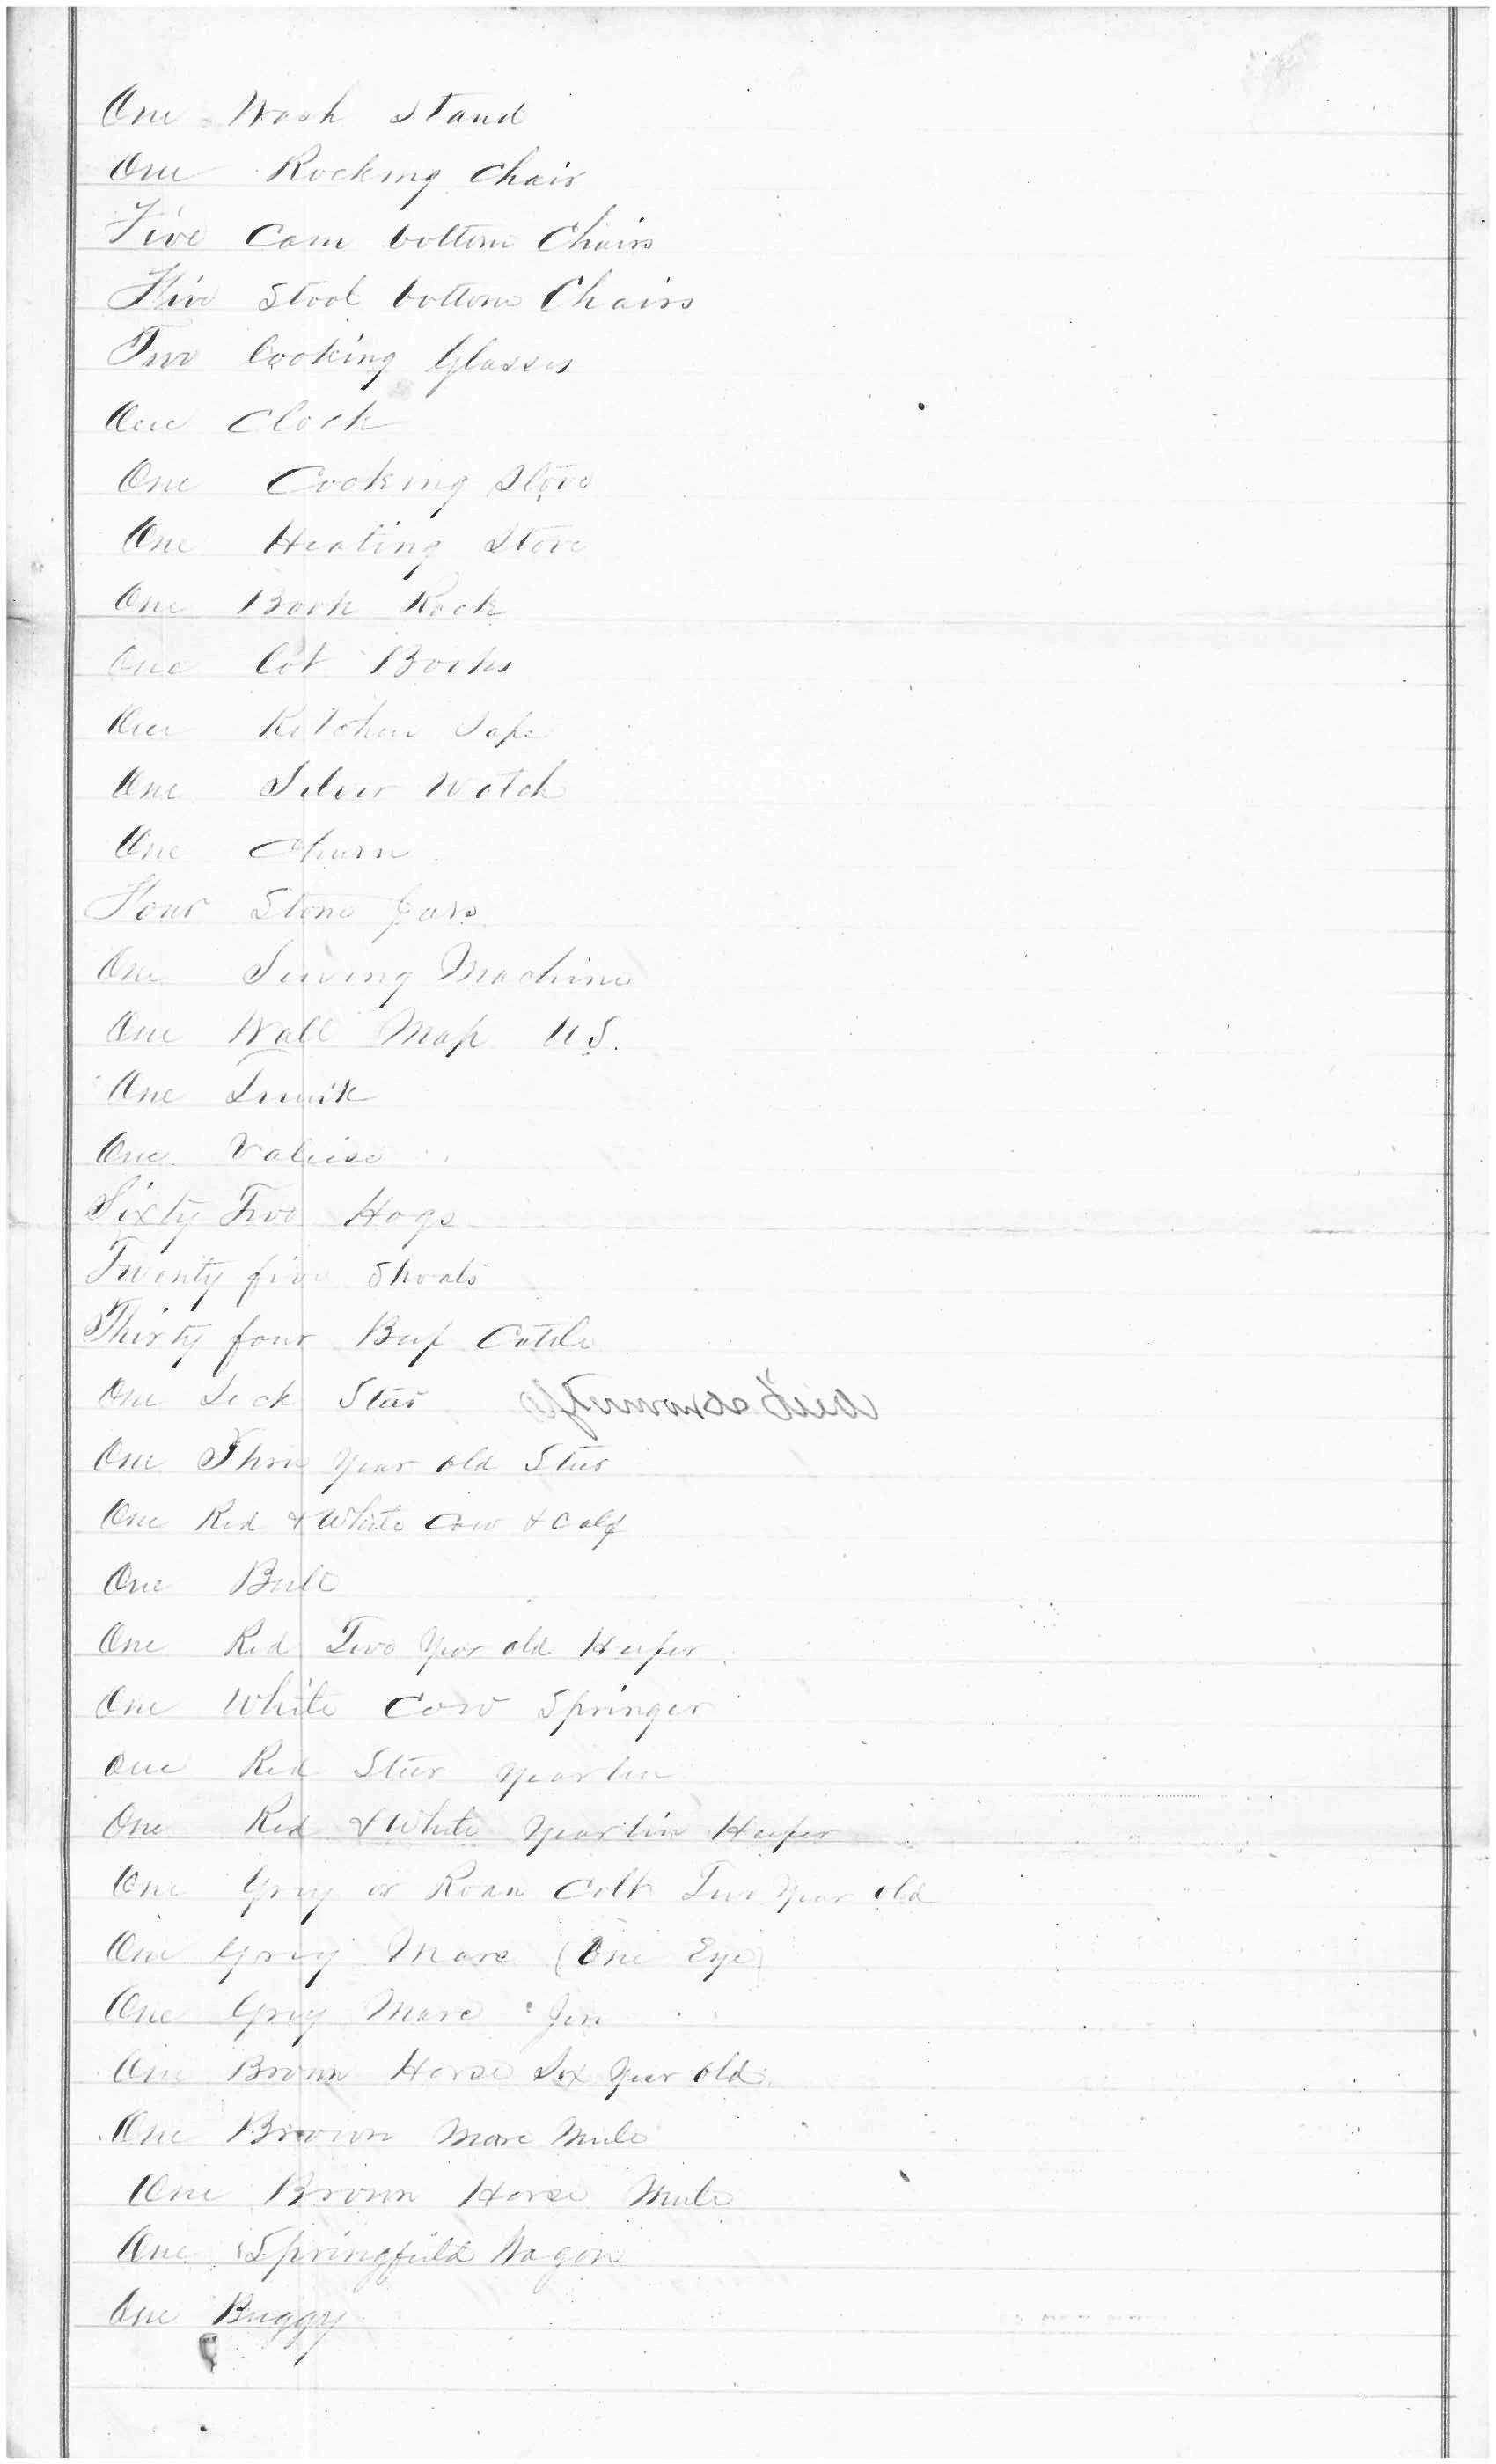 One Wash Stand
One Rocking Chair
Five Cain bottom Chairs
Five Stool bottom Chairs
Two Looking Glasses
One Clock
One Cooking Stove
One Heating Stove
One Book Rack
One Lot Books
One Kitchen Safe
One Silver Watch
One Churn
Four Stone Jars
One Sewing Machine
One Wall Map U.S.
One Trunk
One Valiese
Sixty Two Hogs
Twenty five Shoats
Thirty four Beef Cattle
One Sick Steer
One Three year old Steer
One Red & White Cow & Calf
One Bull
One Red Two Year old Heifer
One White Cow Springer
One Red Steer yearlin
One Red & White yearlin Heifer
One Grey or Roan Colt Two Year old
One Grey Mare (One Eye)
One Grey Mare Jin
One Brown Horse Six Year old
One Brown Mare Mule
One Brown Horse Mule
One Springfield Wagon
One Buggy